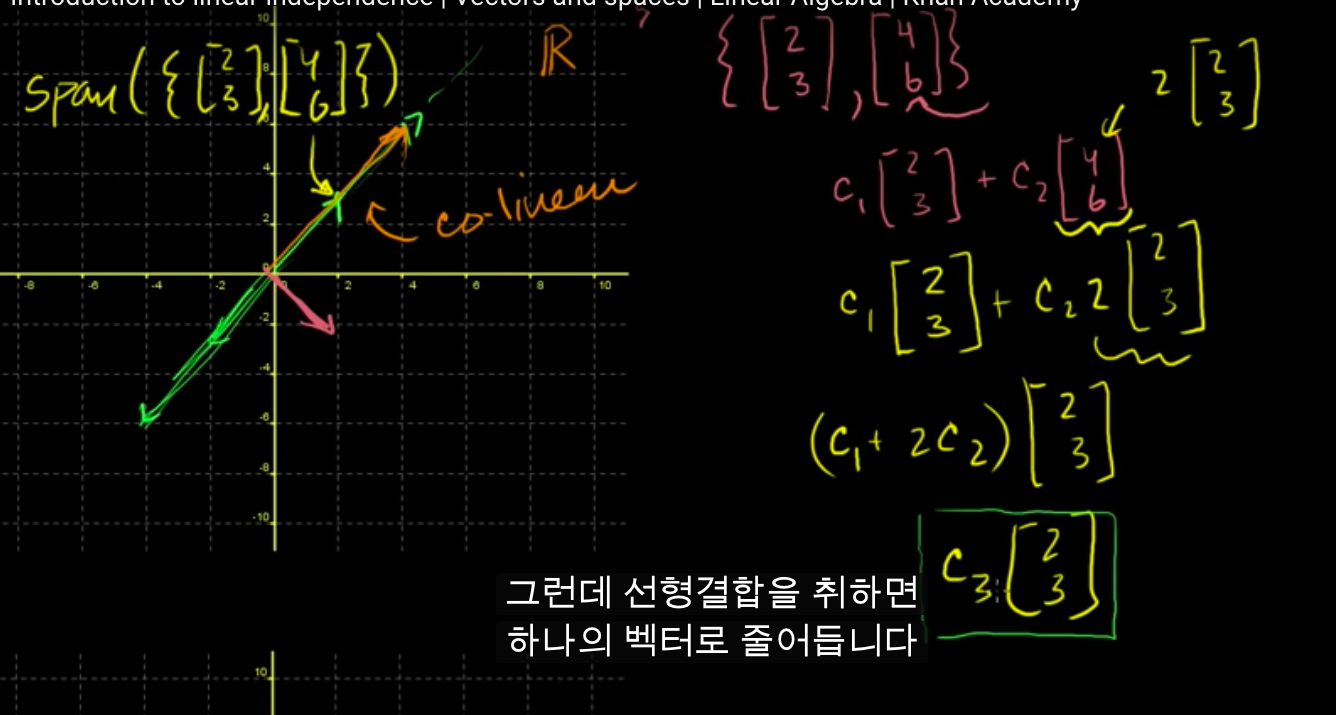 Introduction to linear independence | Vectors and spaces | Linear Algebra | Khan Academy
span({[2 3], [4 6]})
ℝ
co-linear
10
8
6
4
2
0
-8 -6 -4 -2 0 2 4 6 8 10
-2
-4
-6
-8
-10
10
{[2 3], [4 6]}
2 [2 3]
c₁ [2 3] + c₂ [4 6]
c₁ [2 3] + c₂ 2 [2 3]
(c₁ + 2c₂) [2 3]
c₃ [2 3]
그런데 선형결합을 취하면
하나의 벡터로 줄어듭니다